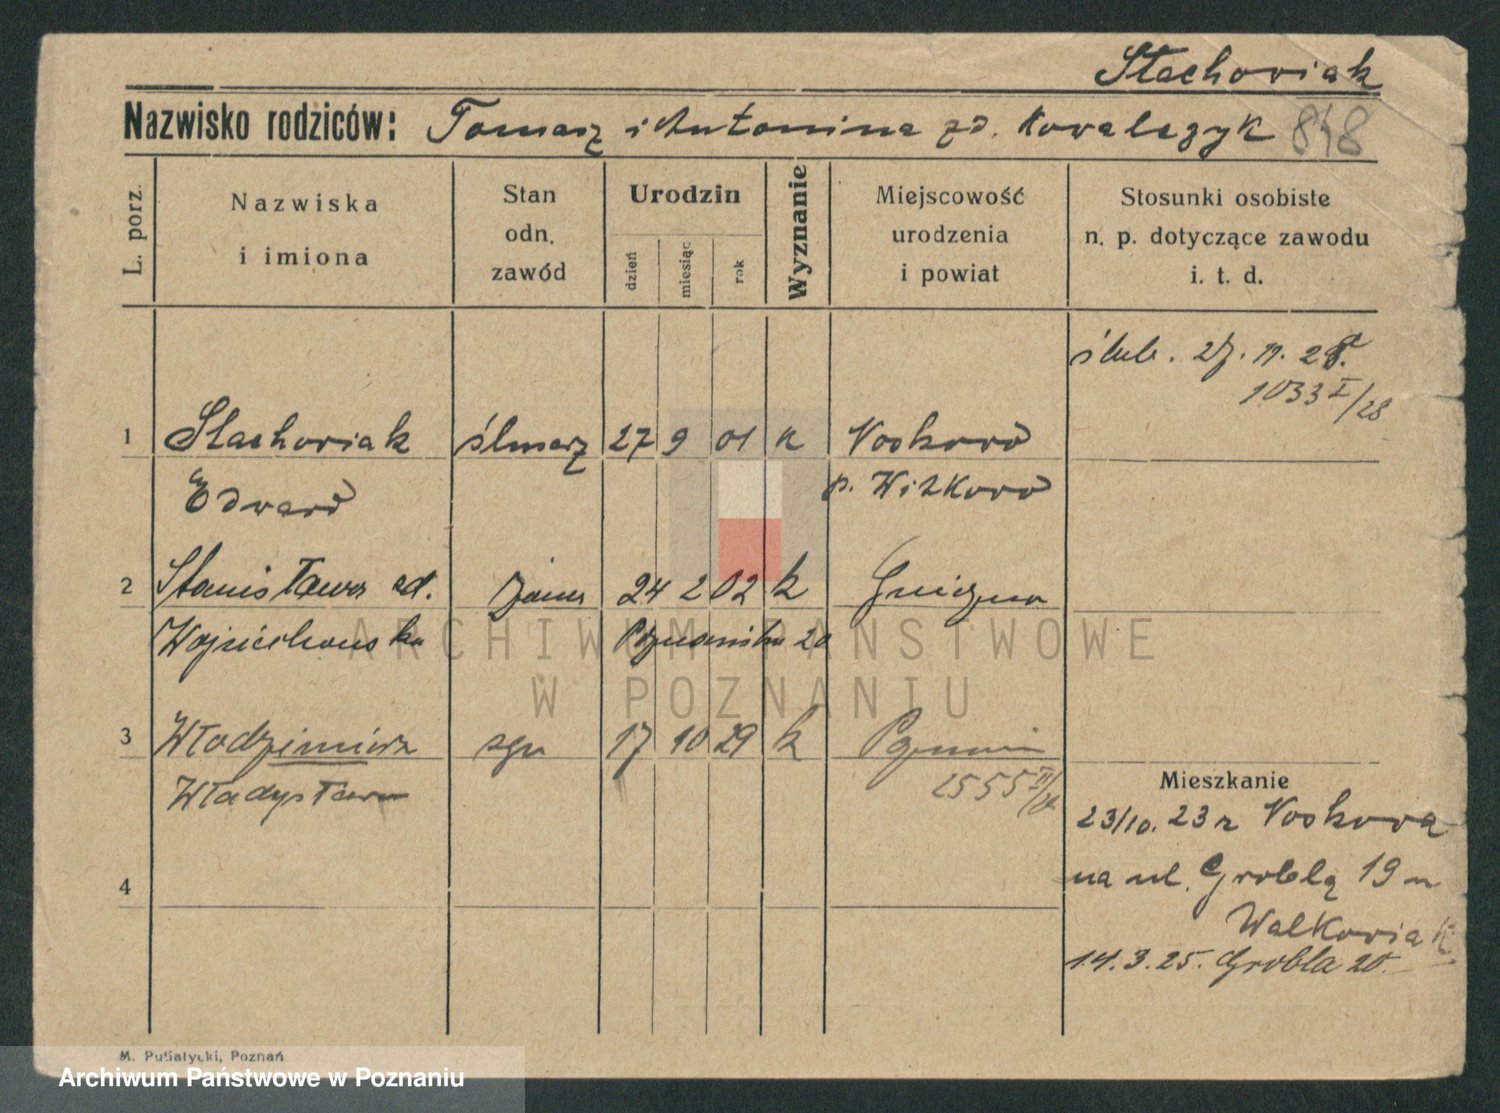 Stachowiak
Nazwisko rodziców: Tomasz i Antonina zd. Kowalczyk 848
L. porz.
Nazwiska
i imiona
Stan
odn.
zawód
Urodzin
dzień
miesiąc
rok
Wyznanie
Miejscowość
urodzenia
i powiat
Stosunki osobiste
n. p. dotyczące zawodu
i. t. d.
ślub. 27. 11. 28.
1033 I/28
1 Stachowiak ślusarz 27 9 01 k Noskowo
Edward p. Witkowo
2 Stanisława zd. żona 24 2 02 k Gniezno
Wojciechowska Poznańska 20
3 Włodzimierz syn 17 10 29 k Poznań
Władysław 2555 II/
Mieszkanie
23/10. 23 z Noskowa
na ul. Groblą 19 m
Walkowiak
14.3.25. Grobla 20.
4
ARCHIWUM PAŃSTWOWE
W POZNANIU
M. Putiatycki, Poznań
Archiwum Państwowe w Poznaniu